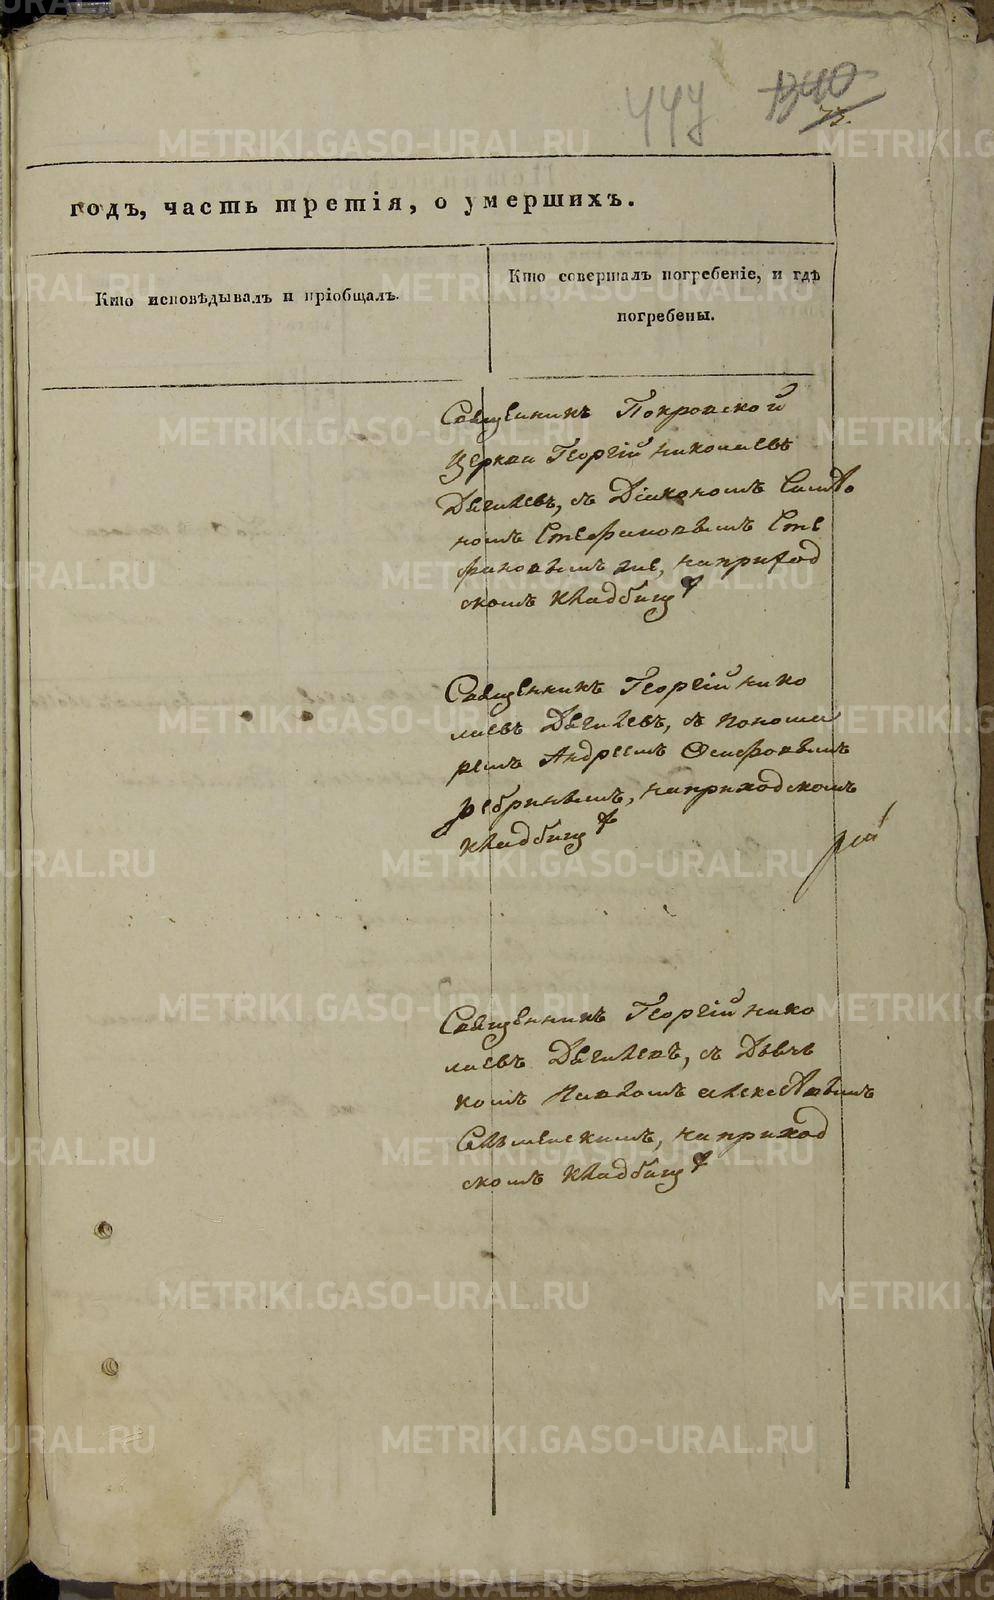 447 1340
73.
годъ, часть третія, о умершихъ.
Кто исповѣдывалъ и пріобщалъ.
Кто совершалъ погребеніе, и гдѣ
погребены.
Священникъ Покровской
Церкви Георгій Николаевъ
Дягилевъ, съ Діакономъ
Стефановымъ Сте
фановымъ же, наприход
скомъ кладбищѣ
Священникъ Георгій Нико
лаевъ Дягилевъ, съ Понома
ремъ Андреемъ Осиповымъ
Ребринымъ, наприходскомъ
кладбищѣ
Священникъ Георгій Нико
лаевъ Дягилевъ, съ Дьяч
комъ Павломъ Алексѣевымъ
наприход
скомъ кладбищѣ
METRIKI.GASO-URAL.RU